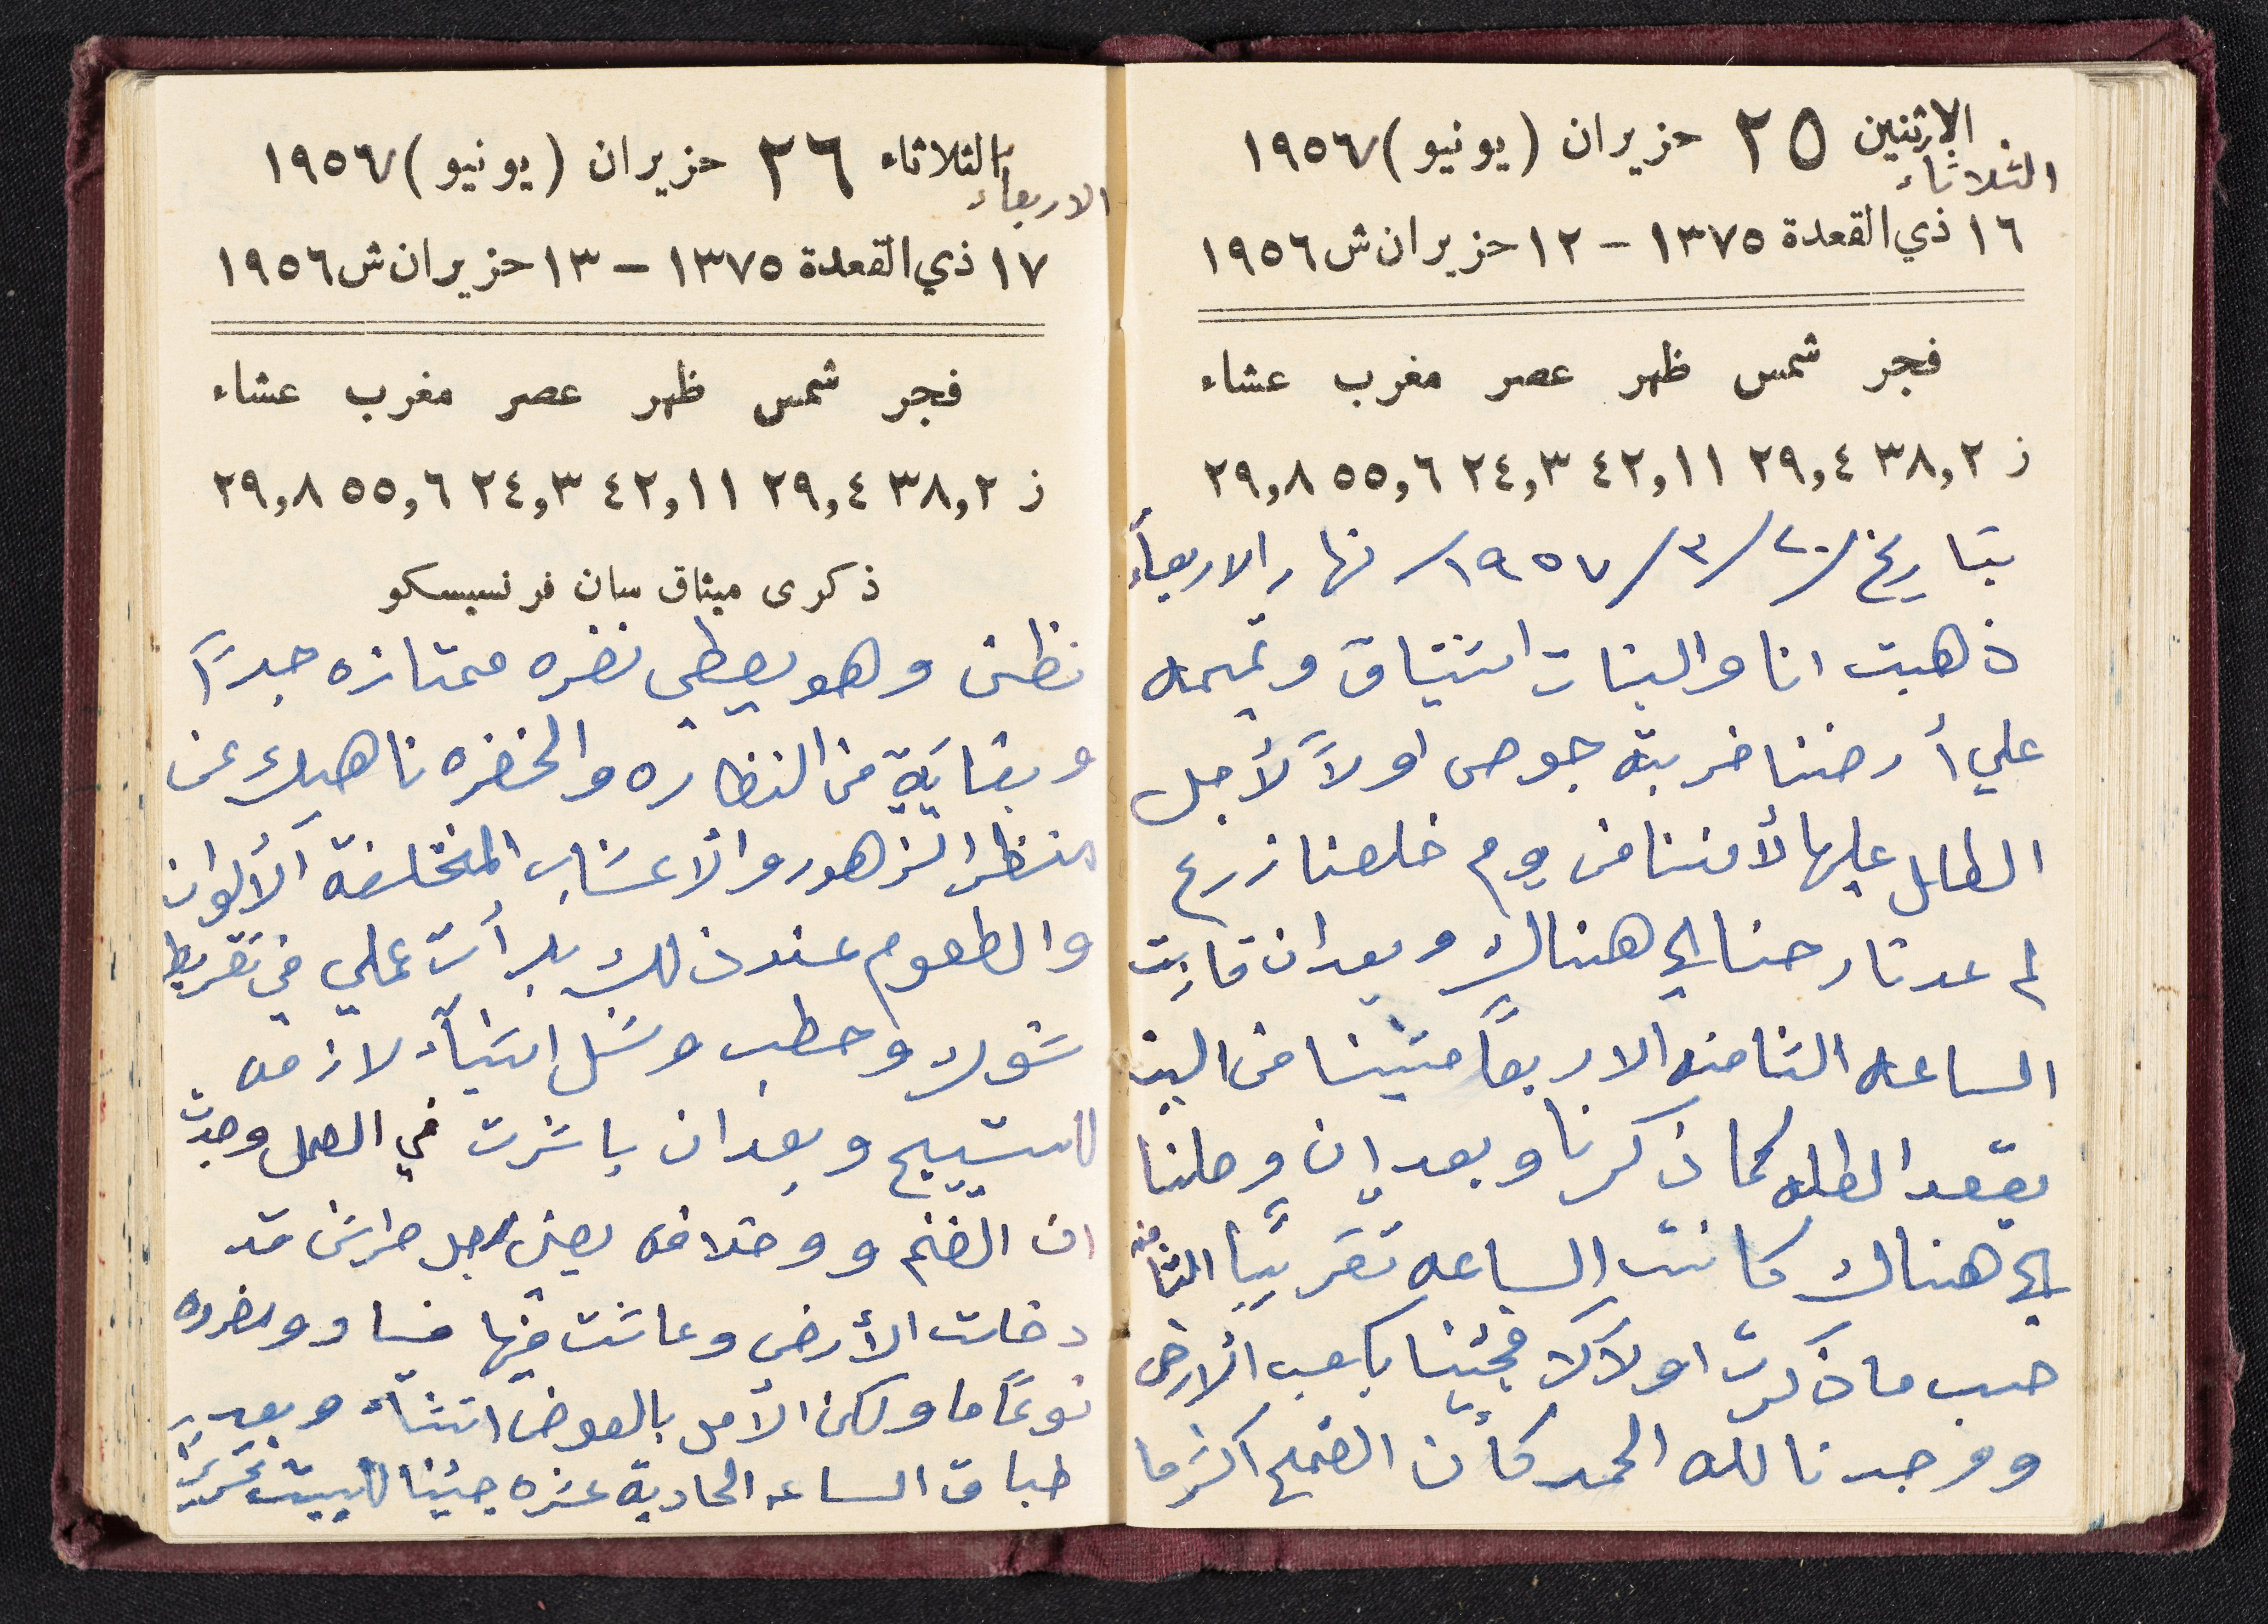 الاثنين ٢٥ حزيران (يونيو) ١٩٥٦/٧
الثلاثاء
١٦ ذي القعدة ١٣٧٥ – ١٢ حزيران ش ١٩٥٦
فجر شمس ظهر عصر مغرب عشاء
ز ٣٨,٢ ٢٩,٤ ٤٢,١١ ٢٤,٣ ٥٥,٦ ٢٩,٨
بتاريخ /٢٠/٣/١٩٥٧/ نهار الاربعاء
ذهبت انا والبنات اشتياق و
علي أرضنا خربة جوهر اولاً لأجل
الطلل عليها لأننا من يوم خلصنا زرع
لم عدنا رحنا الى هناك وبعد ان قاربت
الساعه الثامنه الا ربعاً مشينا من البيت
بقصد الطله كما ذكرنا وبعد ان وصلنا
الى هناك كانت الساعه تقريبًا الثامنه
حسب ما ذكرت اولاً فجينا بكعب الأرض
ووجدنا لله الحمد كأن القمح اكثر ما
الثلاثاء ٢٦ حزيران (يونيو) ١٩٥٦/٧
الاربعاء
١٧ ذي القعدة ١٣٧٥ – ١٣ حزيران ش ١٩٥٦
فجر شمس ظهر عصر مغرب عشاء
ز ٣٨,٢ ٢٩,٤ ٤٢,١١ ٢٤,٣ ٥٥,٦ ٢٩,٨
ذكرى ميثاق سان فرنسيسكو
نظن وهو يعطي نضره ممتازه جداً
وبغاية من النظاره والخضره ناهيك عن
منظر الزهور والأعشاب المختلفة الألوان
والطعوم عند ذلك بدأت عملي في تقريط
شوك وحطب وشل اشياء لازمه
للتسييج وبعد ان باشرت في العمل وجدت
ان الغنم و يعني طرش قد
دخلت الأرض وعاشت فيها فساد ومضروه
نوعًا ما ولكن الأمل بالعوض انشاء وبعد
طباق الساعه الحادية عشره جئنا للبيت